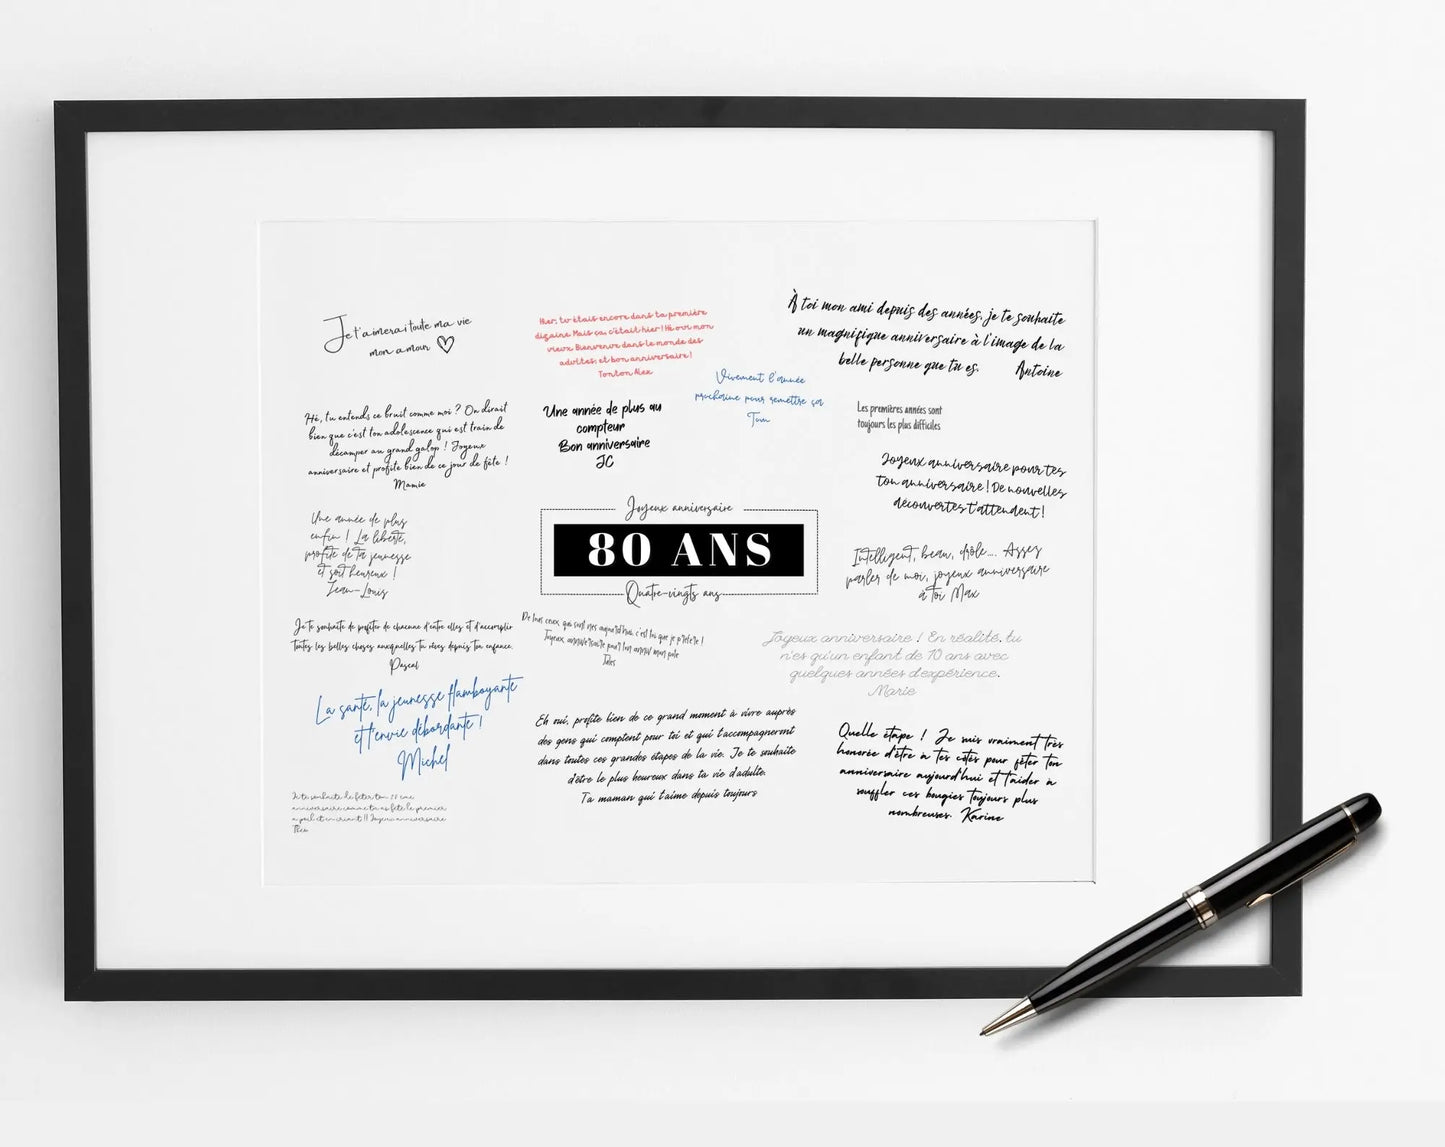 Je t'aimerai toute ma vie
mon amour
Hier, tu étais encore dans ta première
dizaine. Mais ça, c'était hier ! Hé oui mon
vieux. Bienvenue dans le monde des
adultes, et bon anniversaire !
Tonton Alex
À toi mon ami depuis des années, je te souhaite
un magnifique anniversaire à l'image de la
belle personne que tu es. Antoine
Vivement l'année
prochaine pour remettre ça
Tom
Hé, tu entends ce bruit comme moi ? On dirait
bien que c'est ton adolescence qui est train de
décamper au grand galop ! Joyeux
anniversaire et profite bien de ce jour de fête !
Mamie
Une année de plus au
compteur
Bon anniversaire
JC
Les premières années sont
toujours les plus difficiles
Joyeux anniversaire pour tes
ton anniversaire ! De nouvelles
découvertes t'attendent !
Une année de plus
enfin ! La liberté,
profite de ta jeunesse
et soit heureux !
Jean-Louis
Joyeux anniversaire
80 ANS
Quatre-vingts ans
Intelligent, beau, drôle.... Assez
parler de moi, joyeux anniversaire
à toi Max
Je te souhaite de profiter de chacune d'entre elles et d'accomplir
toutes les belles choses auxquelles tu rêves depuis ton enfance.
Pascal
De tous ceux, qui sont nés aujourd'hui, c'est toi que je préfère !
Joyeux, anniversaire pour ton anniv mon pote
Jules
Joyeux anniversaire ! En réalité, tu
n'es qu'un enfant de 10 ans avec
quelques années d'expérience.
Marie
La santé, la jeunesse flamboyante
et l'envie débordante !
Michel
Eh oui, profite bien de ce grand moment à vivre auprès
des gens qui comptent pour toi et qui t'accompagneront
dans toutes ces grandes étapes de la vie. Je te souhaite
d'être le plus heureux dans ta vie d'adulte.
Ta maman qui t'aime depuis toujours
Quelle étape ! Je suis vraiment très
honorée d'être à tes côtés pour fêter ton
anniversaire aujourd'hui et t'aider à
souffler ces bougies toujours plus
nombreuses. Karine
Je te souhaite de fêter ton
anniversaire comme tu as fêté le premier
à poil et en criant !! Joyeux anniversaire